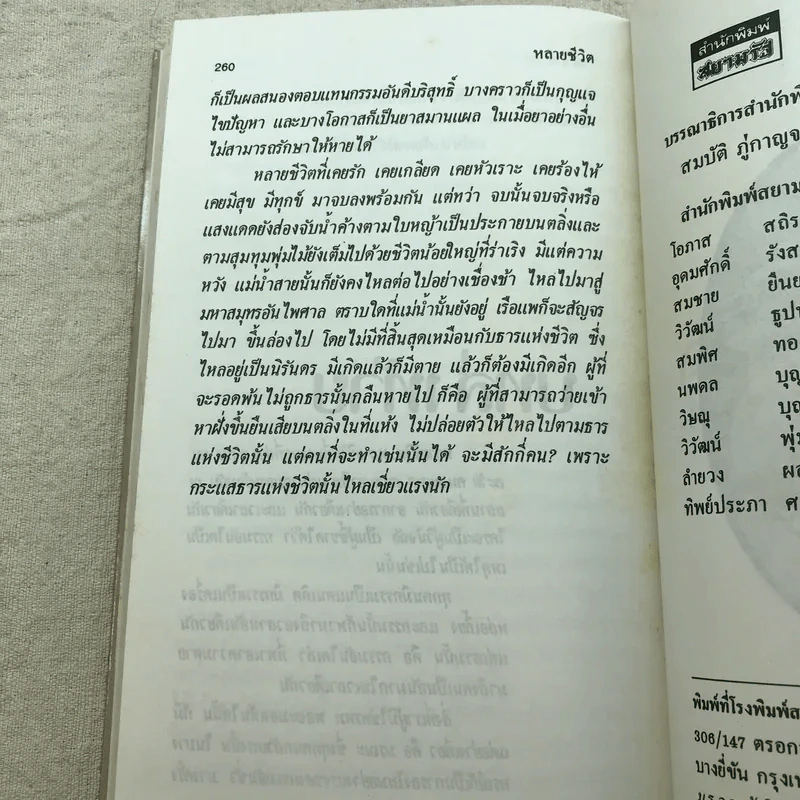 260
หลายชีวิต
ก็เป็นผลสนองตอบแทนกรรมอันดีบริสุทธิ์ บางคราวก็เป็นกุญแจ
ไขปัญหา และบางโอกาสก็เป็นยาสมานแผล ในเมื่อยาอย่างอื่น
ไม่สามารถรักษาให้หายได้
หลายชีวิตที่เคยรัก เคยเกลียด เคยหัวเราะ เคยร้องไห้
เคยมีสุข มีทุกข์ มาจบลงพร้อมกัน แต่ทว่า จบนั้นจบจริงหรือ
แสงแดดยังส่องจับน้ำค้างตามใบหญ้าเป็นประกายบนตลิ่งและ
ตามสุมทุมพุ่มไม้ยังเต็มไปด้วยชีวิตน้อยใหญ่ที่ร่าเริง มีแต่ความ
หวัง แม่น้ำสายนั้นก็ยังคงไหลต่อไปอย่างเชื่องช้า ไหลไปมาสู่
มหาสมุทรอันไพศาล ตราบใดที่แม่น้ำนั้นยังอยู่ เรือแพก็จะสัญจร
ไปมา ขึ้นล่องไป โดยไม่มีที่สิ้นสุดเหมือนกับธารแห่งชีวิต ซึ่ง
ไหลอยู่เป็นนิรันดร มีเกิดแล้วก็มีตาย แล้วก็ต้องมีเกิดอีก ผู้ที่
จะรอดพ้น ไม่ถูกธารนั้นกลืนหายไป ก็คือ ผู้ที่สามารถว่ายเข้า
หาฝั่งขึ้นยืนเสียบนตลิ่งในที่แห้ง ไม่ปล่อยตัวให้ไหลไปตามธาร
แห่งชีวิตนั้น แต่คนที่จะทำเช่นนั้นได้ จะมีสักกี่คน? เพราะ
กระแสธารแห่งชีวิตนั้นไหลเชี่ยวแรงนัก
สำนักพิมพ์
สยามรัฐ
บรรณาธิการสำนักพิ
สมบัติ ภู่กาญจ
สำนักพิมพ์สยาม
โอภาส สถิร
อุดมศักดิ์ รังส
สมชาย ยืนย
วิวัฒน์ ธูป
สมพิศ ทอ
นพดล บุญ
วิษณุ บุญ
วิวัฒน์ พุ่ม
ลำยวง ผล
ทิพย์ประภา ศ
พิมพ์ที่โรงพิมพ์ส
306/147 ตรอก
บางยี่ขัน กรุงเท